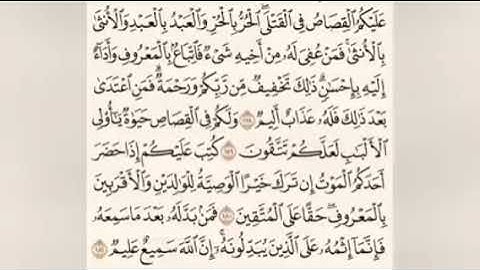 عَلَيْكُمُ ٱلْقِصَاصُ فِى ٱلْقَتْلَى ۖ ٱلْحُرُّ بِٱلْحُرِّ وَٱلْعَبْدُ بِٱلْعَبْدِ وَٱلْأُنثَىٰ
بِٱلْأُنثَىٰ ۚ فَمَنْ عُفِىَ لَهُۥ مِنْ أَخِيهِ شَىْءٌ فَٱتِّبَاعٌۢ بِٱلْمَعْرُوفِ وَأَدَآءٌ
إِلَيْهِ بِإِحْسَٰنٍ ۗ ذَٰلِكَ تَخْفِيفٌ مِّن رَّبِّكُمْ وَرَحْمَةٌ ۗ فَمَنِ ٱعْتَدَىٰ
بَعْدَ ذَٰلِكَ فَلَهُۥ عَذَابٌ أَلِيمٌ ١٧٨ وَلَكُمْ فِى ٱلْقِصَاصِ حَيَوٰةٌ يَٰٓأُو۟لِى
ٱلْأَلْبَٰبِ لَعَلَّكُمْ تَتَّقُونَ ١٧٩ كُتِبَ عَلَيْكُمْ إِذَا حَضَرَ
أَحَدَكُمُ ٱلْمَوْتُ إِن تَرَكَ خَيْرًا ٱلْوَصِيَّةُ لِلْوَٰلِدَيْنِ وَٱلْأَقْرَبِينَ
بِٱلْمَعْرُوفِ ۖ حَقًّا عَلَى ٱلْمُتَّقِينَ ١٨٠ فَمَنۢ بَدَّلَهُۥ بَعْدَ مَا سَمِعَهُۥ
فَإِنَّمَآ إِثْمُهُۥ عَلَى ٱلَّذِينَ يُبَدِّلُونَهُۥٓ ۚ إِنَّ ٱللَّهَ سَمِيعٌ عَلِيمٌ ١٨١